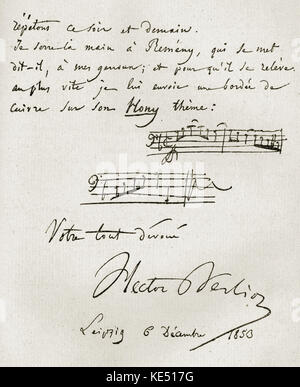 répétons ce soir et demain.
Je serre la main à Remény, qui se met
dit-il, à mes genoux; et pour qu'il se relève
au plus vite je lui envoie une bordée de
cuivre sur son Hony thème:
Votre tout dévoué
Hector Berlioz
Leipzig 6 Décembre 1853
alamy
Image ID: KE517G
www.alamy.com